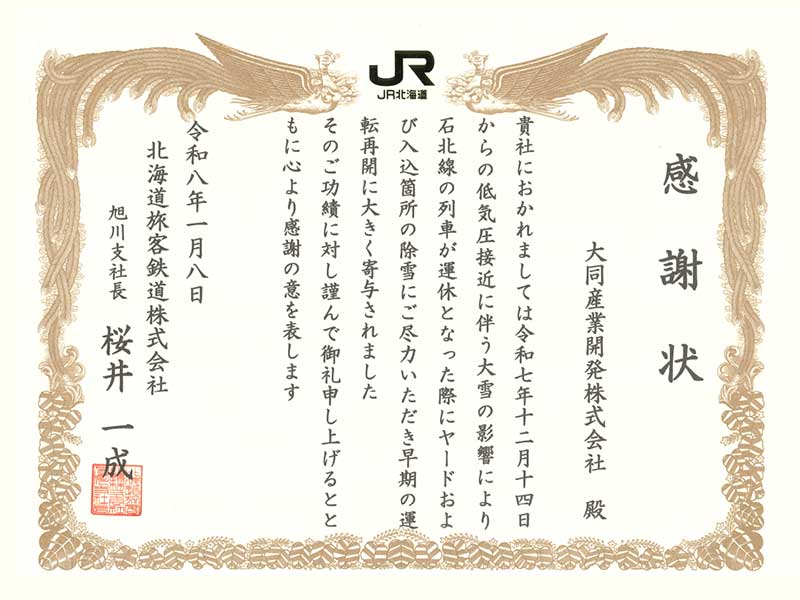 JR
JR北海道
感謝状
大同産業開発株式会社 殿
貴社におかれましては令和七年十二月十四日
からの低気圧接近に伴う大雪の影響により
石北線の列車が運休となった際にヤードおよ
び入込箇所の除雪にご尽力いただき早期の運
転再開に大きく寄与されました
そのご功績に対し謹んで御礼申し上げるとと
もに心より感謝の意を表します
令和八年一月八日
北海道旅客鉄道株式会社
旭川支社長 桜井 一成